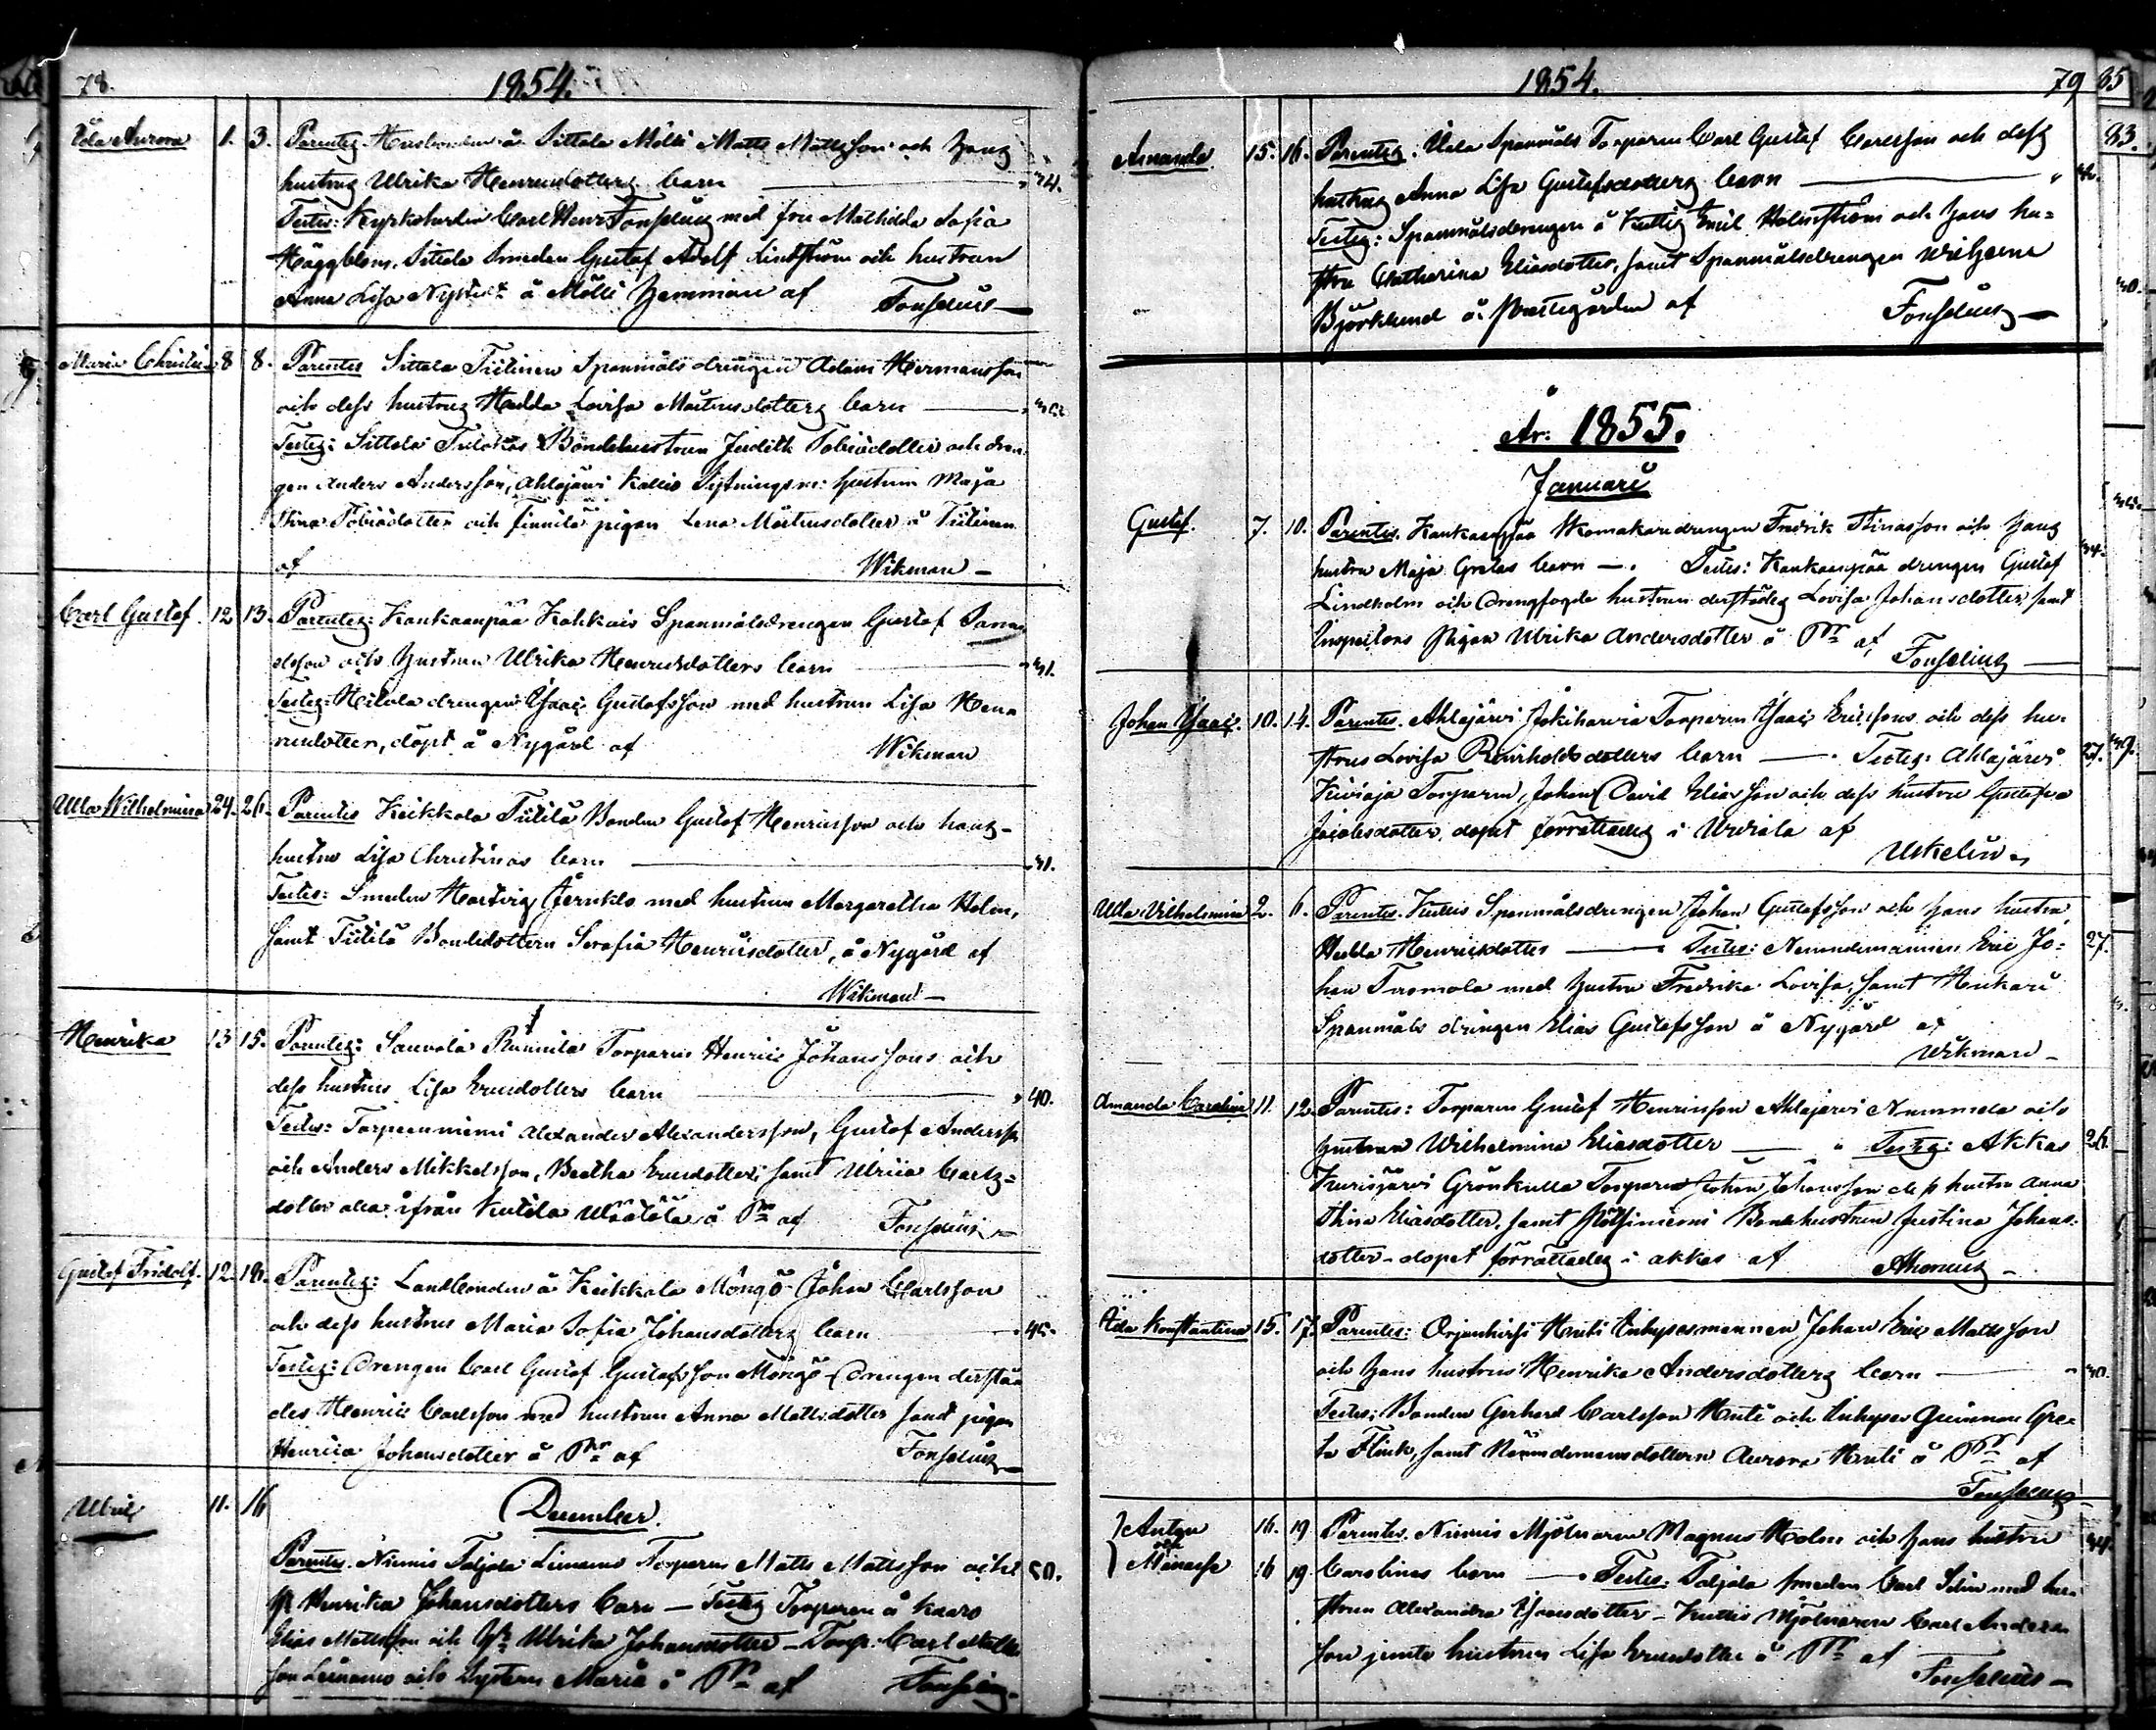 78.
1854.
Ida Aurora 1. 3. Parentes Husbonden å Sittala Mälli Matts Mattsson och hans
hustrus Ulrika Henricsdotters barn 34.
Testes: Kyrkoherden Carl Henr. Fonselius med fru Mathilda Sofia
Häggblom, Sittala Smeden Gustaf Adolf Lindström och hustrun
Anna Lisa Nystedt å Mälli hemman af Fonselius
Maria Christina 8 8. Parentes Sittala Tiilinen Spanmåls drängen Adam Hermansson
och dess hustrus Hedda Lovisa Mårtensdotters barn
Testes: Sittala Bondehustrun Judith Tobiasdotter och drän
gen Anders Andersson, Ahlajärvi Kallio hustrun Maja
Stina Tobiasdotter och pigan Lena Mårtensdotter å Tiilinen
af Wikman
Carl Gustaf. 12 13. Parentes: Kankaanpää Kahkais Spanmålsdrengen Gustaf
och hustrun Ulrika Henricsdotters barn 31.
Testes: Heikola drengen Isaac Gustafsson med hustrun Lisa Hen
ricsdotter, döpt å Nygård af Wikman
Ulla Wilhelmina 24. 26. Parentes Keikkala Tiitilä Bonden Gustaf Henricsson och hans
hustrus Lisa Christinas barn 31.
Testes: Smeden Hartvig Jernklo med hustrun Margaretha Holm,
samt Tiitilä Bondedottern Serafia Henricsdotter, å Nygård af
Wikman
Henrika 13 15. Parentes: Sauvala Runnila Torparens Henric Johanssons och
dess hustrus Lisa Ericsdotters barn 40.
Testes: Alexander Alexandersson, Gustaf Andersson
och Anders Mikkelsson, Beatha Ericsdotter samt Ulrica Carls=
dotter alla ifrån Kutila å Pr af Fonselius
Gustaf Fridolf. 12. 18. Parentes: Landbonden å Keikkala Mongo Johan Carlsson
och dess hustrus Maria Sofia Johansdotters barn
Testes: Drengen Carl Gustaf Gustafsson Mongo Drengen derstä
des Henric Carlsson med hustrun Anna Mattsdotter samt pigan
Henrica Johansdotter å Pr af Fonselius
Ulric 11. 16 December.
Parentes. Niemis Taljala Torparen Matts Mattsson och
Henrika Johansdotters barn — Testes Torparen å
Elias Mattsson och Ulrika Johansdotter — Torp. Carl Matts
son och Systern Maria å Pr af Fonselius
1854.
79 85
83.
Amanda 15. 16. Parentes. Spanmåls Torparen Carl Gustaf Carlsson och dess
hustrus Anna Lisa Gustafsdotters barn
Testes: Spanmålsdrengen å Kuttis Emil Holmström och hans hu=
stru Catharina Eliasdotter, samt Spanmålsdrengen Wilhelm
Björklund å Prestegården af Fonselius
År: 1855.
Januari
Gustaf. 7. 10. Parentes. Kankaanpää Skomakaredrengen Fredrik Stinasson och hans
hustru Maja Gretas barn —. Testes: Kankaanpää drengen Gustaf 34.
Lindholm och Drengfogde hustrun derstädes Lovisa Johansdotter samt
Inspectors Pigan Ulrika Andersdotter å Pr af Fonselius
Johan Isaac. 10. 14. Parentes. Ahlajärvi Jokiharia Torparen Isaac Ericssons och dess hu
strus Lovisa Reinholdsdotters barn — Testes: Ahlajärvi 27.
Torparen Johan David Eliasson och dess hustru Gustafva
Jacobsdotter dopet förrättades i Urdiala af
Uskelin
Ulla Vilhelmina 2. 6. Parentes. Kuttis Spanmålsdrengen Johan Gustafsson och hans hustru
Hedda Henricksdotter — Testes: Nämndemannen Eric Jo= 27.
han Turomola med hustru Fredrika Lovisa, samt Heikari
Spanmåls drängen Elias Gustafsson å Nygård af
Wikman
Amanda Carolina 11. 12. Parentes: Torparen Gustaf Henricsson Ahlajervi Nummela och
hustrun Wilhelmina Eliasdotter — Testes: Akkas 26
Kurisjärvi Grönkulla Torparen Johan Johansson dess hustru Anna
Stina Eliasdotter, samt Bondehustrun Justina Johans
dotter — dopet förrättades i Akkas af
Ida Konstantina 15. 17. Parentes: Orjanhirsi Knuti Inhysesmannen Johan Eric Mattsson
och hans hustrus Henrika Andersdotters barn
Testes: Bonden Gerhard Carlsson Knuti och Inhyses Quinnan Gre
ta Flink, samt Nämndemansdottern Aurora Knuti å Pr af
Fonselius
Anton 16. 19 Parentes. Niemis Mjölnaren Magnus Holm och hans hustru
och
Manasse 16 19. Carolinas barn — Testes. Taljala smeden Carl Selin med hu
strun Alexandra Isaacsdotter — Kuttis Mjölnaren Carl Anders
son jemte hustrun Lisa Ericsdotter å Pr af
Fonselius